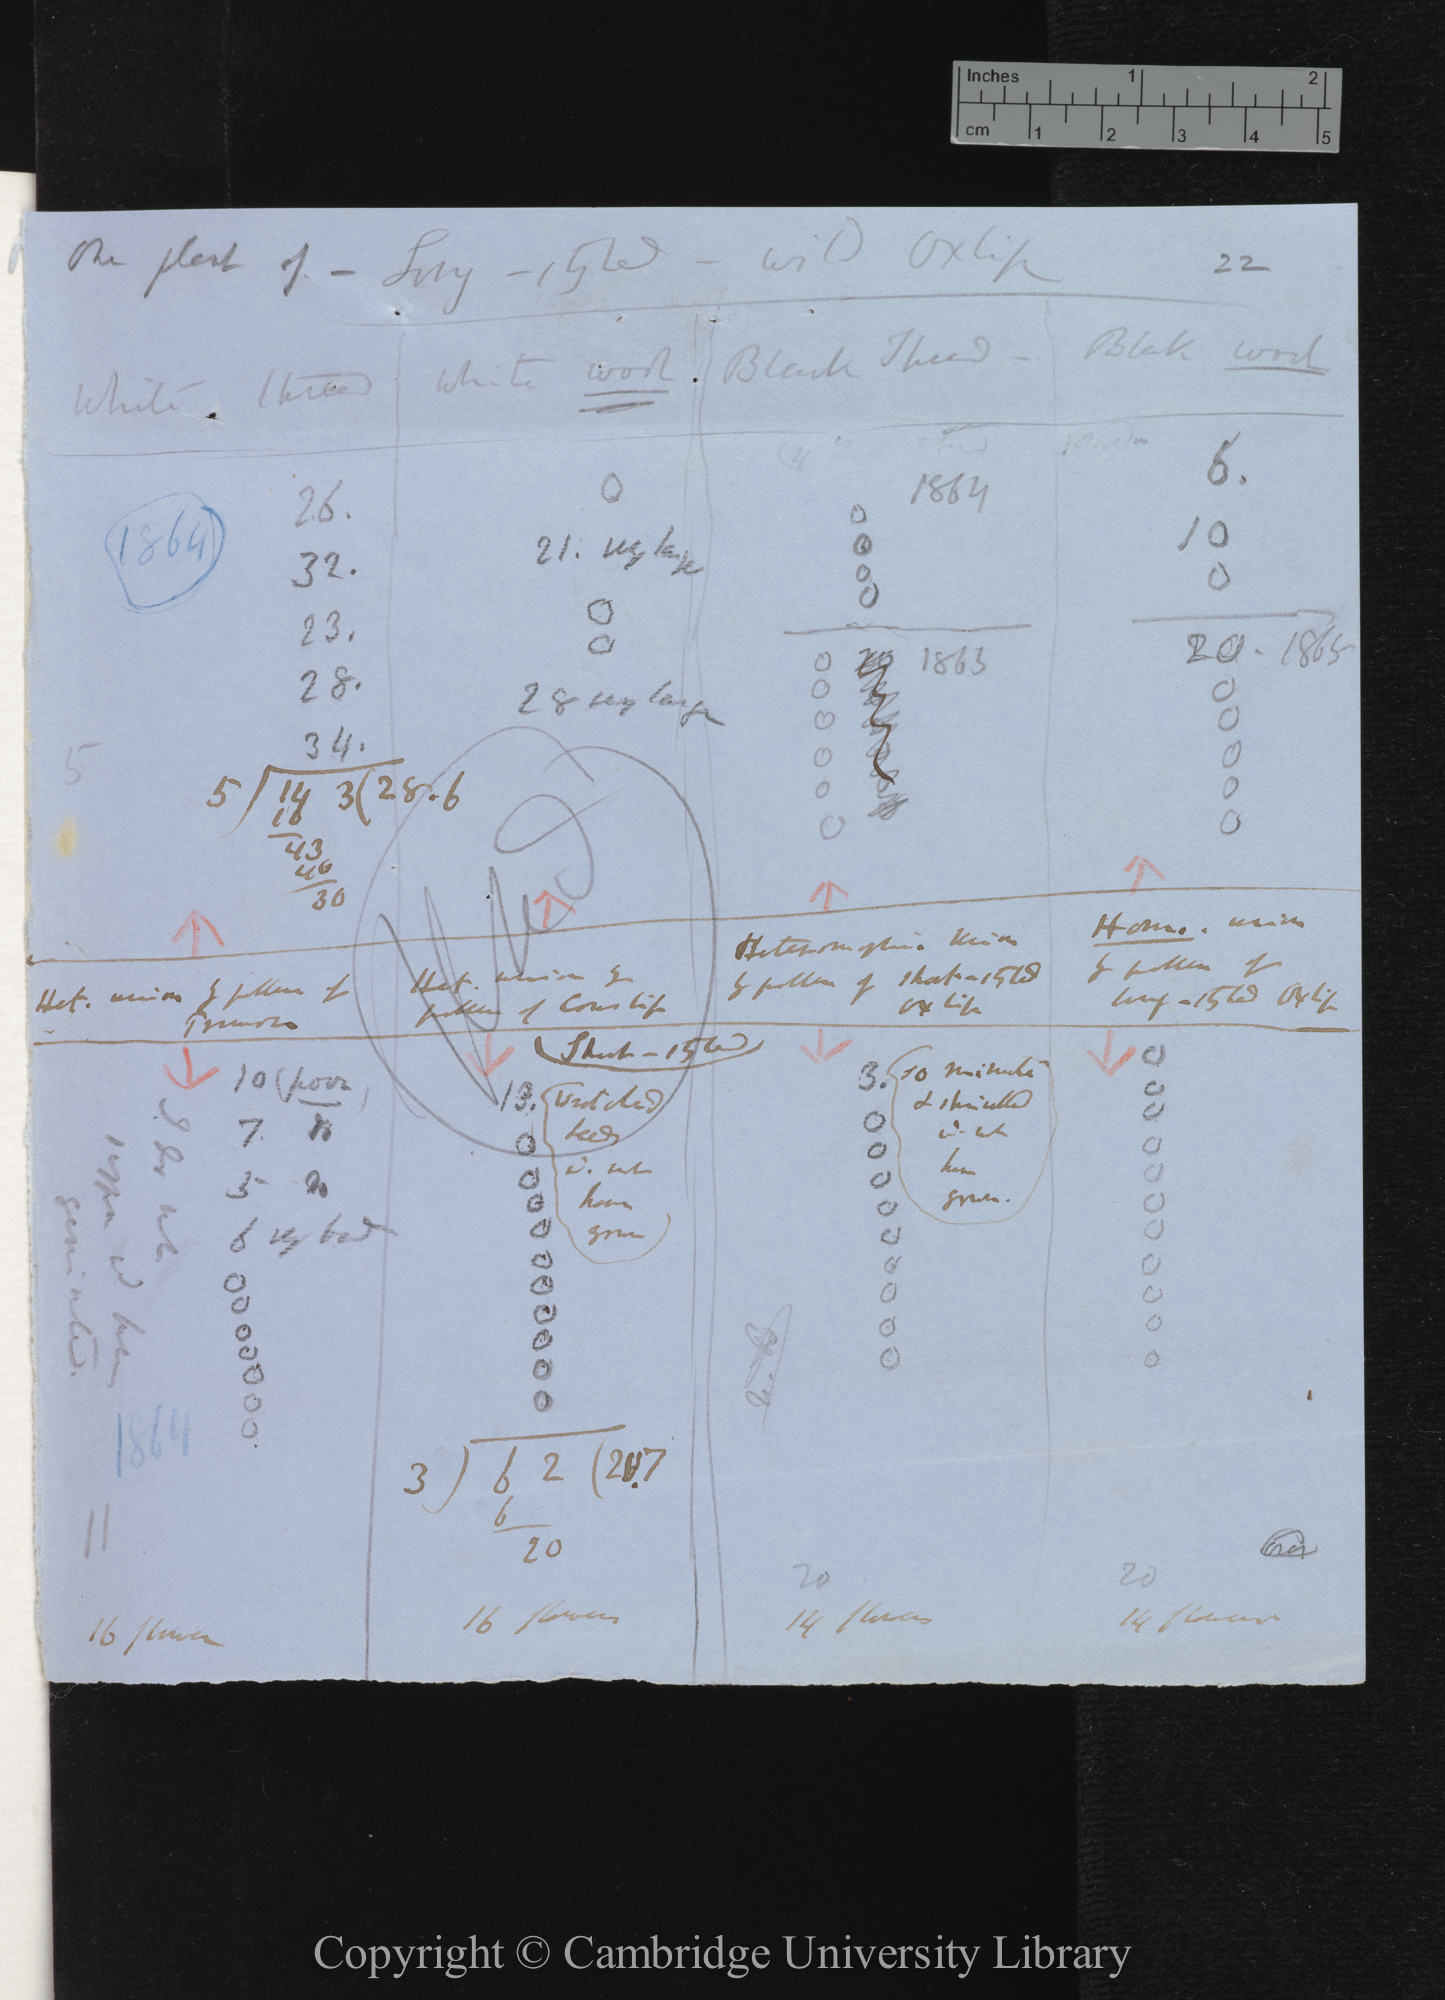 Inches 1 2
cm 1 2 3 4 5
One plant of - Long-styled - wild Oxlip 22
White. thread
White wool.
Black Thread -
Black wool
1864
26.
32.
23.
28.
34.
5
5) 143 (28.6
10
43
40
30
0
21. very large
0
0
28 very large
1864
0
0
0
0
1863
0
0
0
0
0
0
6.
10
0
20. 1863
0
0
0
0
0
Het. union by pollen of
Primrose
Het. union by
pollen of Cowslip
Heteromorphic Union
by pollen of short-styled
Oxlip
Homo. union
by pollen of
long-styled Oxlip
10 (poor)
7.
5
6 very bad
0
0
0
0
0
0
0
I do not
suppose wd have
germinated.
1864
11
16 flowers
Short-styled
13. wretched
seeds
wd. not
have
grown
0
0
0
0
0
0
0
0
0
0
3) 62 (20.7
6
20
16 flowers
3. so minute
& shrivelled
wd. not
have
grown.
0
0
0
0
0
0
0
0
0
20
14 flowers
0
0
0
0
0
0
0
0
0
0
0
over
20
14 flowers
Copyright © Cambridge University Library